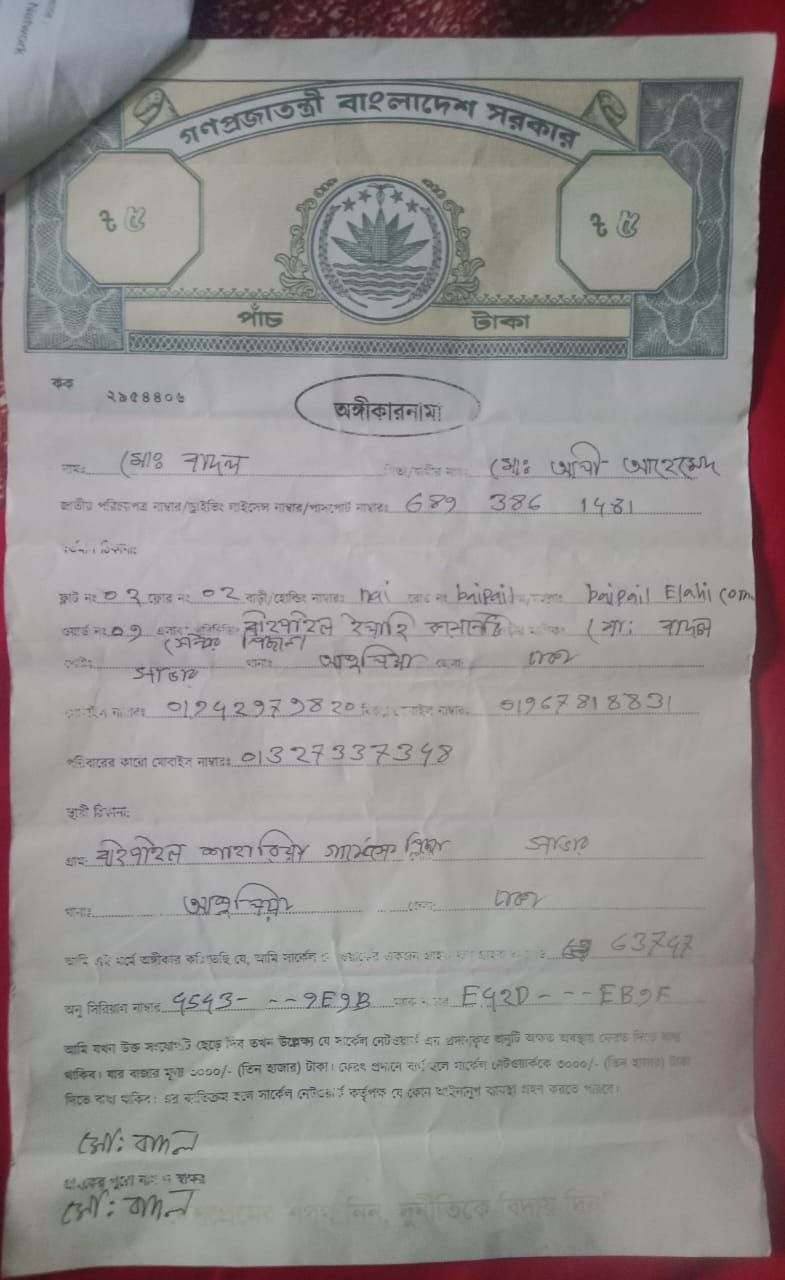 Network
গণপ্রজাতন্ত্রী বাংলাদেশ সরকার
৳ ৫ ৳ ৫
পাঁচ টাকা
কক ২৯৫৪৪০৬
অঙ্গীকারনামা
নামঃ মোঃ বাদল মোঃ আলী আহম্মেদ
জাতীয় পরিচয়পত্র নাম্বার/ড্রাইভিং লাইসেন্স নাম্বার/পাসপোর্ট নাম্বারঃ 689 386 1481
ফ্লাট নং ০২ ফ্লোর নং ০২ বাড়ী/হোল্ডিং নাম্বারঃ nai baipail baipail Elahi com
ওয়ার্ড নং ০৭ মো: বাদল
সাভার থানাঃ আশুলিয়া ঢাকা
01942979820 01967818831
পরিবারের কারো মোবাইল নাম্বারঃ 01327337348
স্থায়ী ঠিকানা:
গ্রাম: বাইপাইল সাভার
থানাঃ আশুলিয়া ঢাকা
আমি এই মর্মে অঙ্গীকার করিতেছি যে, আমি সার্কেল 63747
অনু সিরিয়াল নাম্বার 4543- --9E9B E92D- --EB9F
আমি যখন উক্ত সংযোগটি ছেড়ে দিব তখন উল্লেখ্য যে সার্কেল নেটওয়ার্ক এর প্রদানকৃত অনুটি অক্ষত অবস্থায় ফেরত দিতে বাধ্য
থাকিব। যার বাজার মূল্য ৩০০০/- (তিন হাজার) টাকা। ফেরৎ প্রদানে ব্যর্থ হলে সার্কেল নেটওয়ার্ককে ৩০০০/- (তিন হাজার) টাকা
দিতে বাধ্য থাকিব। এর ব্যতিক্রম হলে সার্কেল নেটওয়ার্ক কর্তৃপক্ষ যে কোন আইনানুগ ব্যবস্থা গ্রহন করতে পারবে।
মো: বাদল
গ্রাহকের পুরো নাম ও স্বাক্ষর
মো: বাদল
শপথ নিন, দুর্নীতিকে বিদায় দিন"